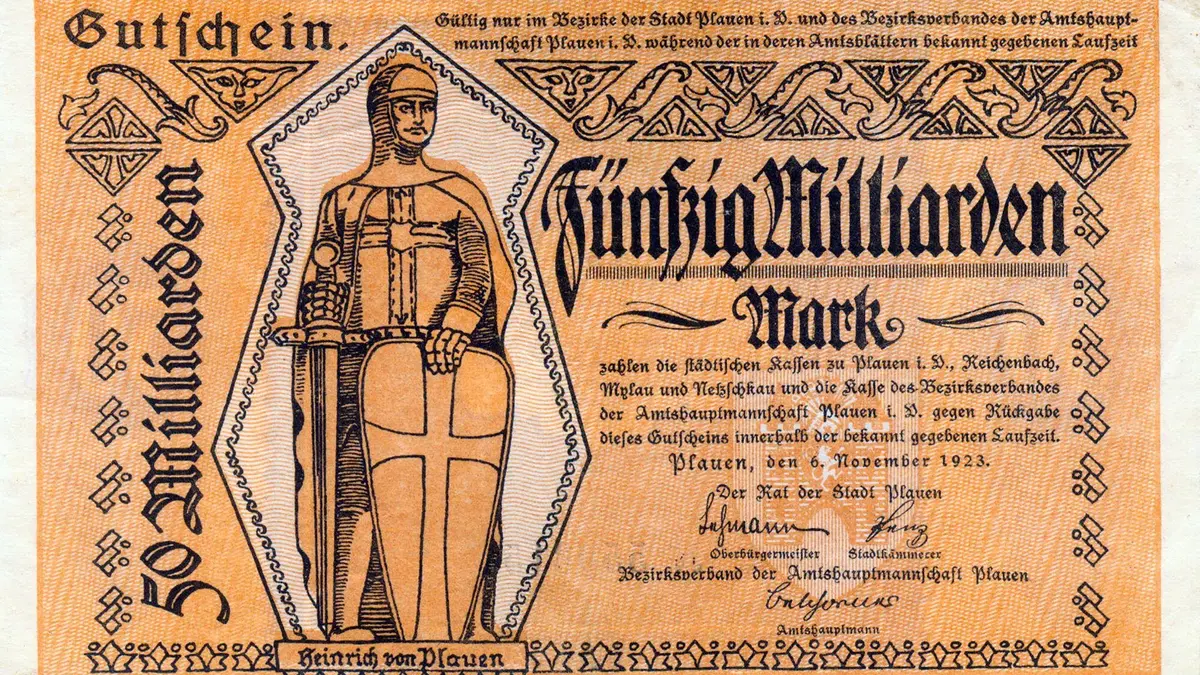 Gutschein.
Gültig nur im Bezirke der Stadt Plauen i. V. und des Bezirksverbandes der Amtshaupt-
mannschaft Plauen i. V. während der in deren Amtsblättern bekannt gegebenen Laufzeit
50 Milliarden
Fünfzig Milliarden
Mark
zahlen die städtischen Kassen zu Plauen i. V., Reichenbach,
Mylau und Netzschkau und die Kasse des Bezirksverbandes
der Amtshauptmannschaft Plauen i. V. gegen Rückgabe
dieses Gutscheins innerhalb der bekannt gegebenen Laufzeit.
Plauen, den 6. November 1923.
Der Rat der Stadt Plauen
Lehmann
Oberbürgermeister Stadtkämmerer
Bezirksverband der Amtshauptmannschaft Plauen
Amtshauptmann
Heinrich von Plauen